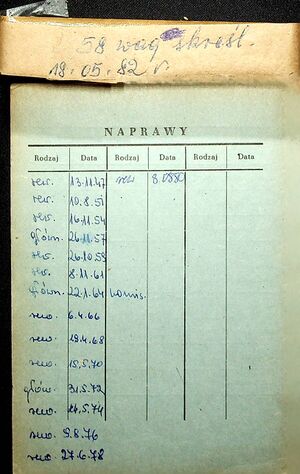 58 wag skreśl.
18.05.82 r.
NAPRAWY
Rodzaj Data Rodzaj Data Rodzaj Data
rew. 13.11.47 rew 8.0880
rew. 10.8.51
rew. 16.11.54
główn. 26.11.57
rew. 26.10.59
rew. 8.11.61
główn. 22.1.64 komis.
rew. 6.4.66
rew. 19.4.68
rew. 15.5.70
główn. 31.5.72
rew. 14.5.74
rew. 9.8.76
rew. 27.6.78